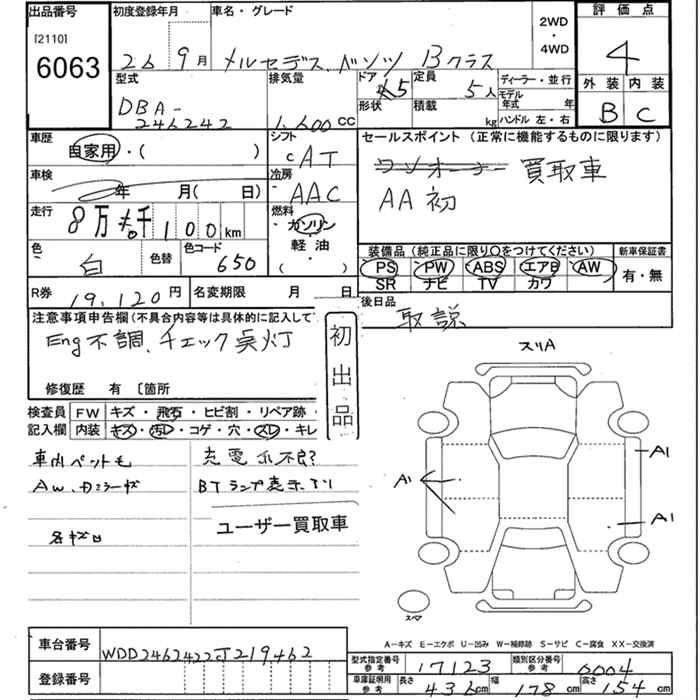 出品番号
[2110]
6063
初度登録年月
26 9月
車名・グレード
メルセデス.ベンツ Bクラス
2WD
・
4WD
評価点
4
型式
DBA-
246242
排気量
1.600CC
ドア 5
形状
定員 5人
積載 kg
ディーラー・並行
モデル
年式 年
ハンドル 左・右
外装 内装
B C
車歴
自家用・( )
シフト
CAT
セールスポイント (正常に機能するものに限ります)
ワンオーナー 買取車
AA初
車検
年 月( 日)
冷房
AAC
走行
8万 千100km
燃料
ガソリン
軽油・
( )
色
白
色替
色コード
650
装備品 (純正品に限り○をつけてください)
PS PW ABS エアB AW
SR ナビ TV カワ
新車保証書
有・無
R券 19,120円
名変期限 月 日
後日品
取説
注意事項申告欄(不具合内容等は具体的に記入して
Eng不調、チェック
修復歴 有 [箇所
初出品
検査員
記入欄
FW キズ・飛石・ヒビ割・リペア跡・
内装 キズ・汚レ・コゲ・穴・スレ・キレ
車内ペット毛
充電 不良?
BTランプ表示アリ
ユーザー買取車
スリA
A1
A1
A1
スペア
A-キズ E-エクボ U-凹み W-補修跡 S-サビ C-腐食 XX-交換済
車台番号 WDD2462422J219462
登録番号
型式指定番号
参考
17123
類別区分番号
参考
0004
車庫証明用
参考
長さ 436cm 幅 178cm 高さ 154cm